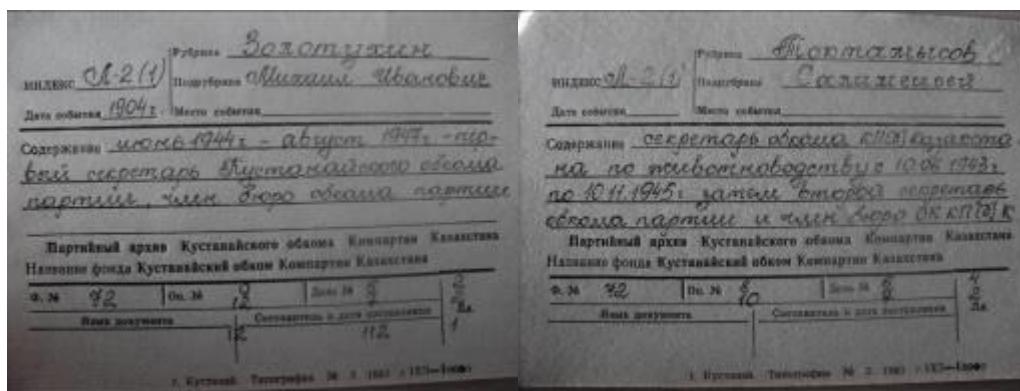 Рубрика Золотухин
ИНДЕКС Л-2(1) Подрубрика Михаил Иванович
Дата события 1904 г. Место события
Содержание июнь 1944 г - август 1947 г. - пер-
вый секретарь Кустанайского обкома
партии, член бюро обкома партии
Партийный архив Кустанайского обкома Компартии Казахстана
Название фонда Кустанайский обком Компартии Казахстана
Ф. № 72 Оп. № 9 Дело № 2
12
Язык документа Составитель и дата составления Лл.
12 112 1
г. Кустанай. Типография № 2
Рубрика Токтамысов
ИНДЕКС Л-2(1) Подрубрика
Дата события Место события
Содержание секретарь обкома КП(б) Казахста
на по животноводству с 10.06 1943 г
по 10.11.1945 г затем второй секретарь
обкома партии и член бюро ОК КП(б)К
Партийный архив Кустанайского обкома Компартии Казахстана
Название фонда Кустанайский обком Компартии Казахстана
Ф. № 72 Оп. № 8 Дело №
10
Язык документа Составитель и дата составления Лл.
г. Кустанай. Типография № 2